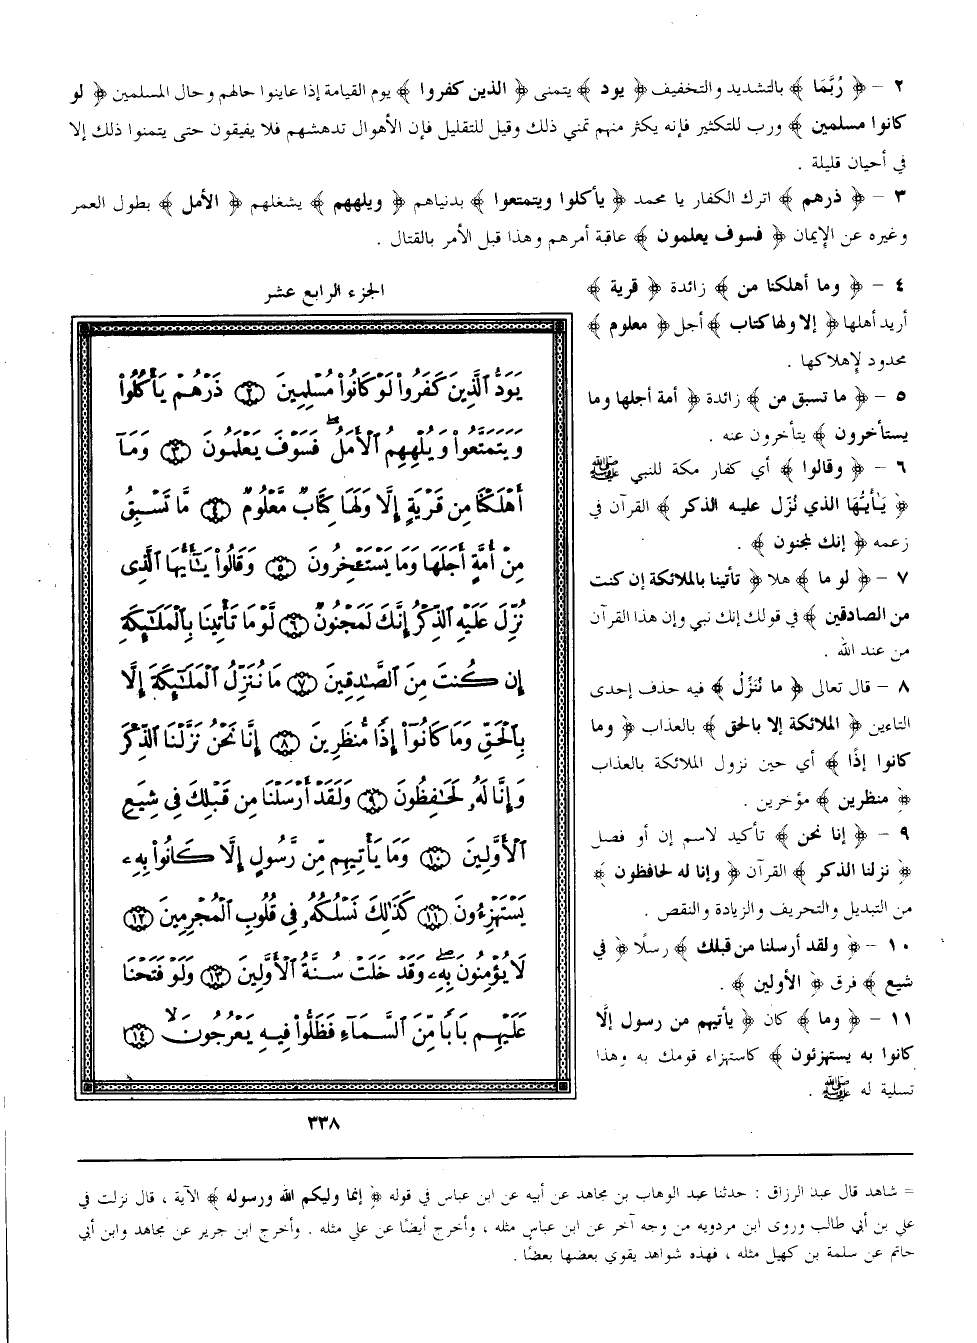 ٢ - ﴿ رُبَّمَا ﴾ بالتشديد والتخفيف ﴿ يود ﴾ يتمنى ﴿ الذين كفروا ﴾ يوم القيامة إذا عاينوا حالهم وحال المسلمين ﴿ لو
كانوا مسلمين ﴾ ورب للتكثير فإنه يكثر منهم تمني ذلك وقيل للتقليل فإن الأهوال تدهشهم فلا يفيقون حتى يتمنوا ذلك إلا
في أحيان قليلة .
٣ - ﴿ ذرهم ﴾ اترك الكفار يا محمد ﴿ يأكلوا ويتمتعوا ﴾ بدنياهم ﴿ ويلههم ﴾ يشغلهم ﴿ الأمل ﴾ بطول العمر
وغيره عن الإيمان ﴿ فسوف يعلمون ﴾ عاقبة أمرهم وهذا قبل الأمر بالقتال .
٤ - ﴿ وما أهلكنا من ﴾ زائدة ﴿ قرية ﴾
أريد أهلها ﴿ إلا ولها كتاب ﴾ أجل ﴿ معلوم ﴾
محدود لإهلاكها .
٥ - ﴿ ما تسبق من ﴾ زائدة ﴿ أمة أجلها وما
يستأخرون ﴾ يتأخرون عنه .
٦ - ﴿ وقالوا ﴾ أي كفار مكة للنبي ﷺ
﴿ يَـٰأيُّها الذي نُزّل عليه الذكر ﴾ القرآن في
زعمه ﴿ إنك لمجنون ﴾ .
٧ - ﴿ لو ما ﴾ هلا ﴿ تأتينا بالملائكة إن كنت
من الصادقين ﴾ في قولك إنك نبي وإن هذا القرآن
من عند الله .
٨ - قال تعالى ﴿ ما نُنَزِّلُ ﴾ فيه حذف إحدى
التاءين ﴿ الملائكة إلا بالحق ﴾ بالعذاب ﴿ وما
كانوا إذًا ﴾ أي حين نزول الملائكة بالعذاب
﴿ منظرين ﴾ مؤخرين .
٩ - ﴿ إنا نحن ﴾ تأكيد لاسم إن أو فصل
﴿ نزلنا الذكر ﴾ القرآن ﴿ وإنا له لحافظون ﴾
من التبديل والتحريف والزيادة والنقص .
١٠ - ﴿ ولقد أرسلنا من قبلك ﴾ رسلًا ﴿ في
شيع ﴾ فرق ﴿ الأولين ﴾ .
١١ - ﴿ وما ﴾ كان ﴿ يأتيهم من رسول إلَّا
كانوا به يستهزئون ﴾ كاستهزاء قومك به وهذا
تسلية له ﷺ .
الجزء الرابع عشر
يَوَدُّ ٱلَّذِينَ كَفَرُواْ لَوۡ كَانُواْ مُسۡلِمِينَ ٢ ذَرۡهُمۡ يَأۡكُلُواْ
وَيَتَمَتَّعُواْ وَيُلۡهِهِمُ ٱلۡأَمَلُۖ فَسَوۡفَ يَعۡلَمُونَ ٣ وَمَآ
أَهۡلَكۡنَا مِن قَرۡيَةٍ إِلَّا وَلَهَا كِتَابٌ مَّعۡلُومٌ ٤ مَّا تَسۡبِقُ
مِنۡ أُمَّةٍ أَجَلَهَا وَمَا يَسۡتَـٔۡخِرُونَ ٥ وَقَالُواْ يَـٰٓأَيُّهَا ٱلَّذِى
نُزِّلَ عَلَيۡهِ ٱلذِّكۡرُ إِنَّكَ لَمَجۡنُونٌ ٦ لَّوۡمَا تَأۡتِينَا بِٱلۡمَلَـٰٓئِكَةِ
إِن كُنتَ مِنَ ٱلصَّـٰدِقِينَ ٧ مَا نُنَزِّلُ ٱلۡمَلَـٰٓئِكَةَ إِلَّا
بِٱلۡحَقِّ وَمَا كَانُوٓاْ إِذًا مُّنظَرِينَ ٨ إِنَّا نَحۡنُ نَزَّلۡنَا ٱلذِّكۡرَ
وَإِنَّا لَهُۥ لَحَـٰفِظُونَ ٩ وَلَقَدۡ أَرۡسَلۡنَا مِن قَبۡلِكَ فِى شِيَعِ
ٱلۡأَوَّلِينَ ١٠ وَمَا يَأۡتِيهِم مِّن رَّسُولٍ إِلَّا كَانُواْ بِهِۦ
يَسۡتَهۡزِءُونَ ١١ كَذَٰلِكَ نَسۡلُكُهُۥ فِى قُلُوبِ ٱلۡمُجۡرِمِينَ ١٢
لَا يُؤۡمِنُونَ بِهِۦۖ وَقَدۡ خَلَتۡ سُنَّةُ ٱلۡأَوَّلِينَ ١٣ وَلَوۡ فَتَحۡنَا
عَلَيۡهِم بَابًا مِّنَ ٱلسَّمَآءِ فَظَلُّواْ فِيهِ يَعۡرُجُونَۙ ١٤
٣٣٨
= شاهد قال عبد الرزاق : حدثنا عبد الوهاب بن مجاهد عن أبيه عن ابن عباس في قوله ﴿ إنما وليكم الله ورسوله ﴾ الآية ، قال نزلت في
علي بن أبي طالب وروى ابن مردويه من وجه آخر عن ابن عباس مثله ، وأخرج أيضًا عن علي مثله . وأخرج ابن جرير عن مجاهد وابن أبي
حاتم عن سلمة بن كهيل مثله ، فهذه شواهد يقوي بعضها بعضًا .